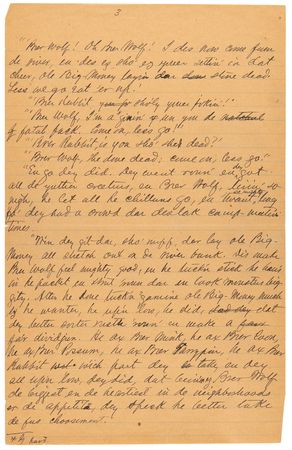 3
"Brer Wolf! Oh Brer Wolf! I des now come fum
de river, en des ez sho' ez youer settin in dat
cheer, ole Big-Money layin' dar stone dead.
Less we go eat 'er up!"
"Brer Rabbit you sholy youer jokin'!"
"Brer Wolf, I'm a givin' un you de
fatal fack. Come on, less go!"
"Brer Rabbit, is you sho' she dead?"
"Brer Wolf, she done dead; come on, less go."
"En go dey did. Dey went roun' en got
all de yuther creeturs, en Brer Wolf,
he let all he chilluns go, en
dey had a crowd dar des lak camp-meetin
times.
"W'en dey git dar, sho' nuff, dar lay ole Big-
Money all stretch out on de river bank. Dis make
Brer Wolf feel mighty good, en he stick he han's
in he pocket en strut roun' dar en look monstus big-
gity. Atter he done examine ole Big Money much
ez he wanter, he up'n low, he did, dat
dey better enter roun' en make a
fair dividjun. He ax Brer Mink, he ax Brer Coon,
he ax Brer Possum, he ax Brer Tarrypin, he ax Brer
Rabbit w'ich part dey take, en dey
all up'n low, dey did, dat bein's Brer Wolf
de biggest en de heartiest in de neighborhoods
er de appetite, dey he better take
de fus' choosement.